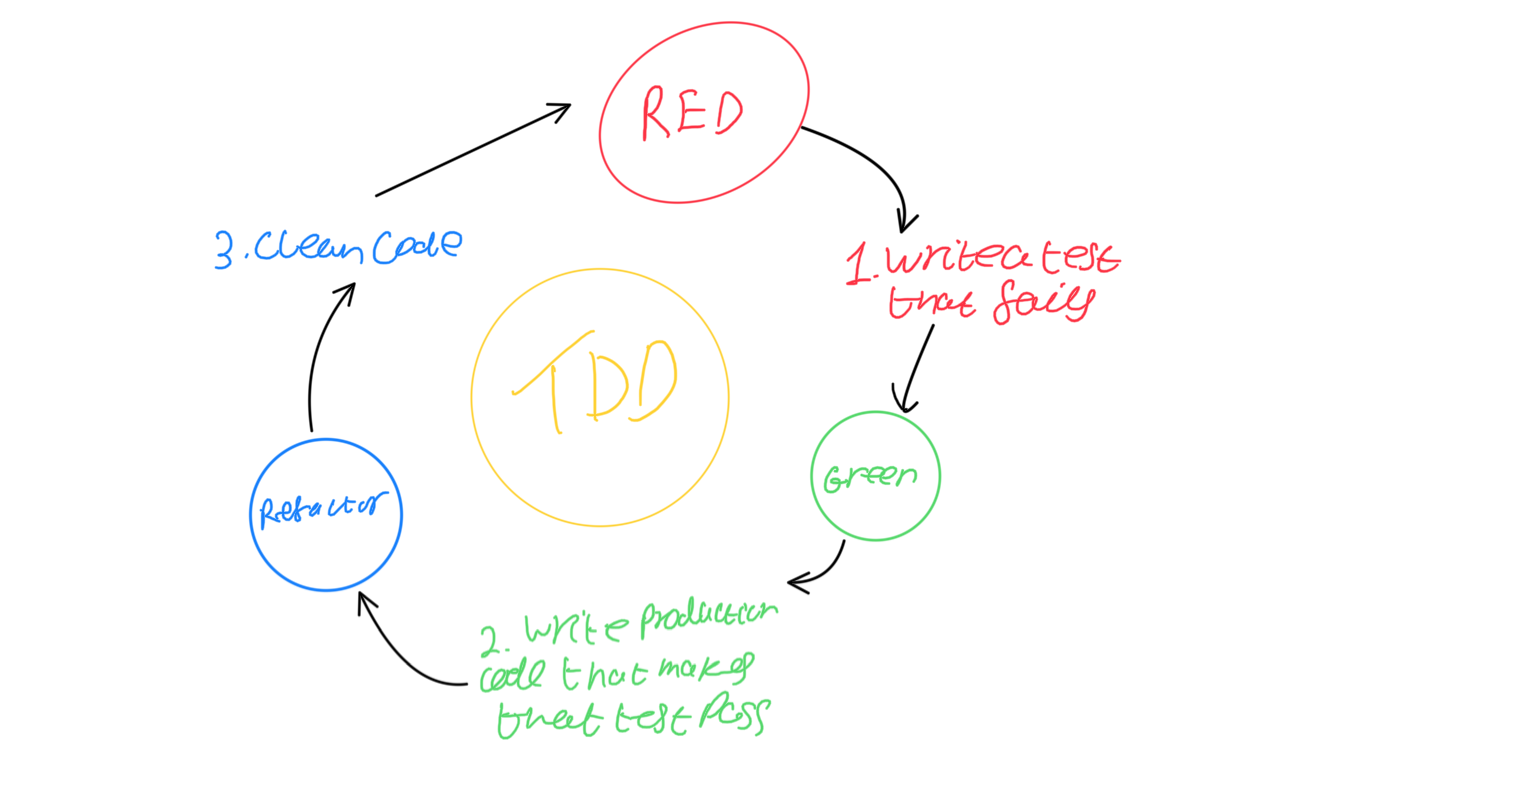 RED
1. write a test
that fails
Green
2. write production
code that makes
that test pass
Refactor
3. Clean Code
TDD